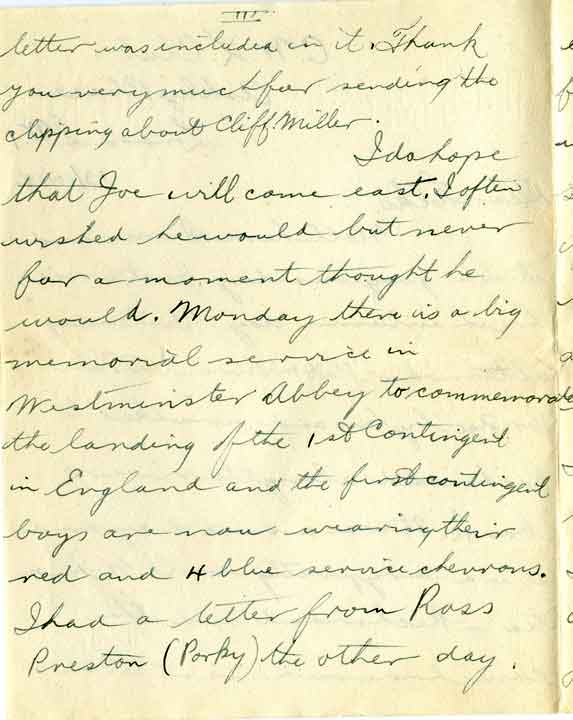 III
letter was included in it. Thank
you very much for sending the
clipping about Cliff Miller.
I do hope
that Joe will come east. I often
wished he would but never
for a moment thought he
would. Monday there is a big
memorial service in
Westminster Abbey to commemorate
the landing of the 1st Contingent
in England and the first contingent
boys are now wearing their
red and 4 blue service chevrons.
I had a letter from Ross
Preston (Porky) the other day.